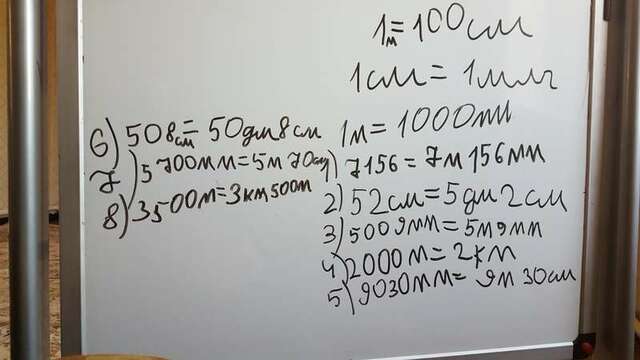 1м=100см
1см=1млг
1м=1000мм
6) 508см=50дм8см
7) 5700мм=5м70см
8) 3500м=3км500м
1) 7156=7м156мм
2) 52см=5дм2см
3) 5009мм=5м9мм
4) 2000м=2км
5) 9030мм=9м30см